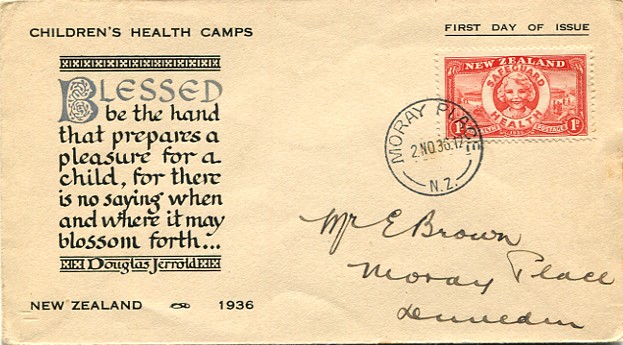 CHILDREN'S HEALTH CAMPS
FIRST DAY OF ISSUE
BLESSED
be the hand
that prepares a
pleasure for a
child, for there
is no saying when
and where it may
blossom forth...
Douglas Jerrold
NEW ZEALAND 1936
NEW ZEALAND
SAFEGUARD
HEALTH
1D 1D
POSTAGE
MORAY PLACE
2 NO 36. 12
N.Z.
Mr E Brown
Moray Place
Dunedin